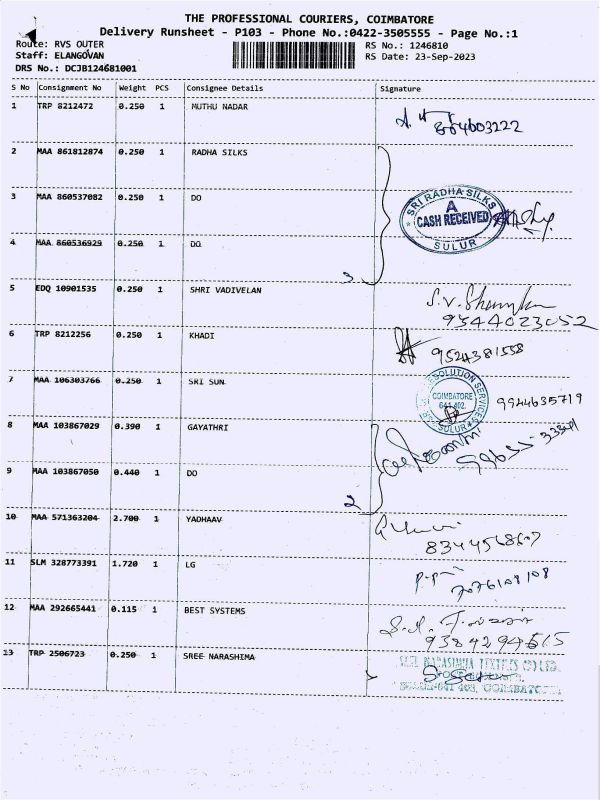 THE PROFESSIONAL COURIERS, COIMBATORE
Delivery Runsheet - P103 - Phone No.:0422-3505555 - Page No.:1
Route: RVS OUTER
RS No.: 1246810
Staff: ELANGOVAN
RS Date: 23-Sep-2023
DRS No.: DCJB124681001
S No Consignment No Weight PCS Consignee Details Signature
1 TRP 8212472 0.250 1 MUTHU NADAR
2 MAA 861812874 0.250 1 RADHA SILKS
3 MAA 860537082 0.250 1 DO
SRI RADHA SILKS
A
CASH RECEIVED
SULUR
4 MAA 860536929 0.250 1 DO
3
5 EDQ 10901535 0.250 1 SHRI VADIVELAN
9344023052
6 TRP 8212256 0.250 1 KHADI
9524381558
7 MAA 106303766 0.250 1 SRI SUN
RESOLUTION SERVICES
COIMBATORE
641 402
SULUR
9944635719
8 MAA 103867029 0.390 1 GAYATHRI
9 MAA 103867050 0.440 1 DO
2
10 MAA 571363204 2.700 1 YADHAAV
11 SLM 328773391 1.720 1 LG
7076108108
12 MAA 292665441 0.115 1 BEST SYSTEMS
9384294515
13 TRP 2506723 0.250 1 SREE NARASHIMA